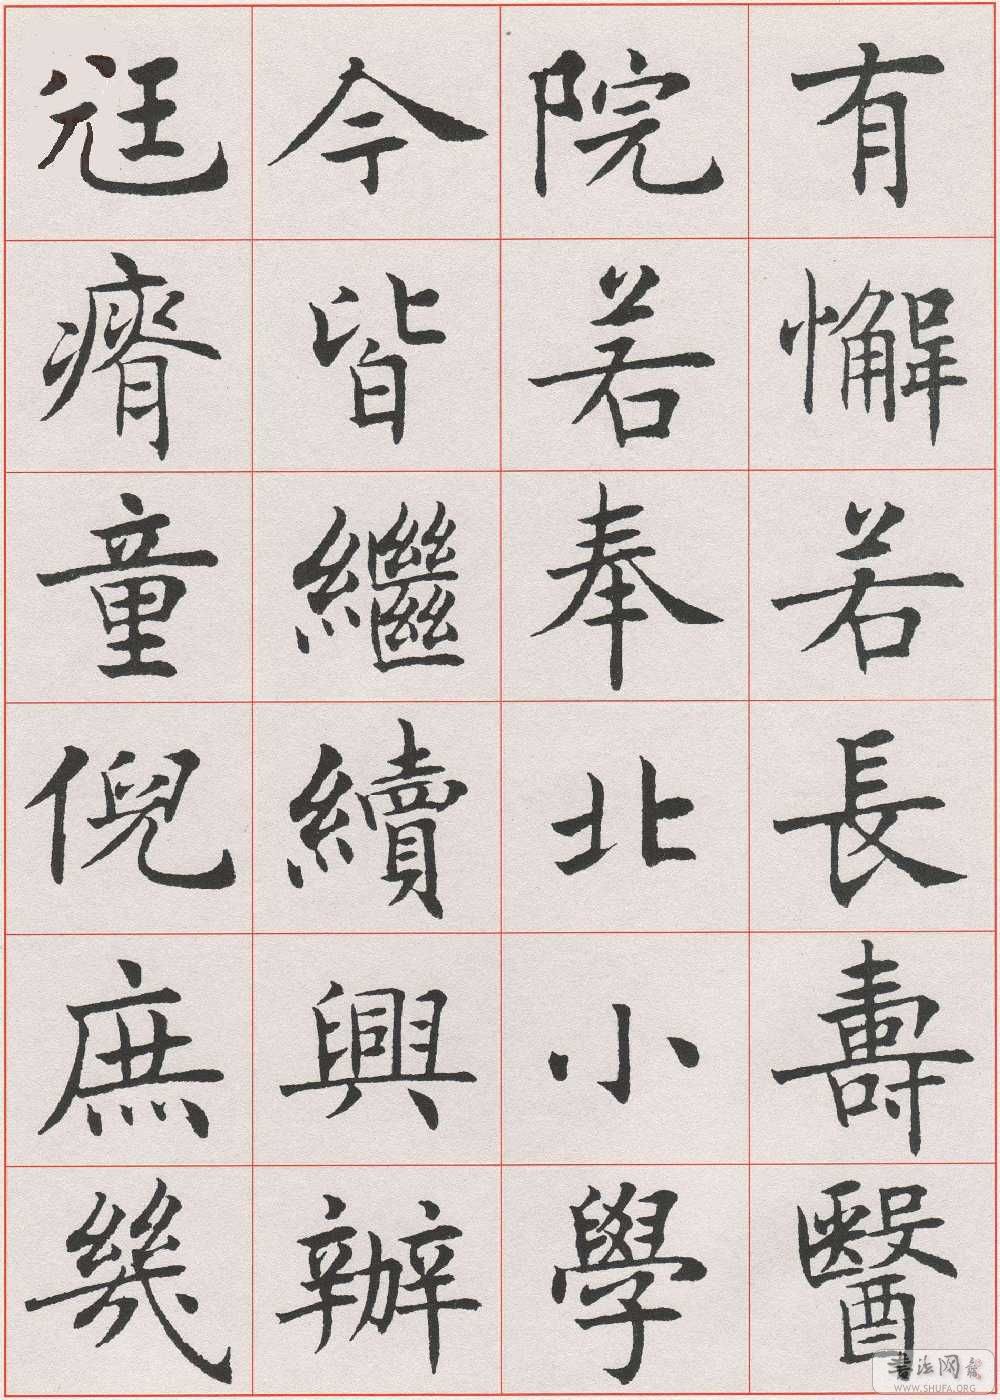 有懈若長壽醫
院若奉北小學
今皆繼續興辦
尩瘠童倪庶幾
书法网
WWW.SHUFA.ORG